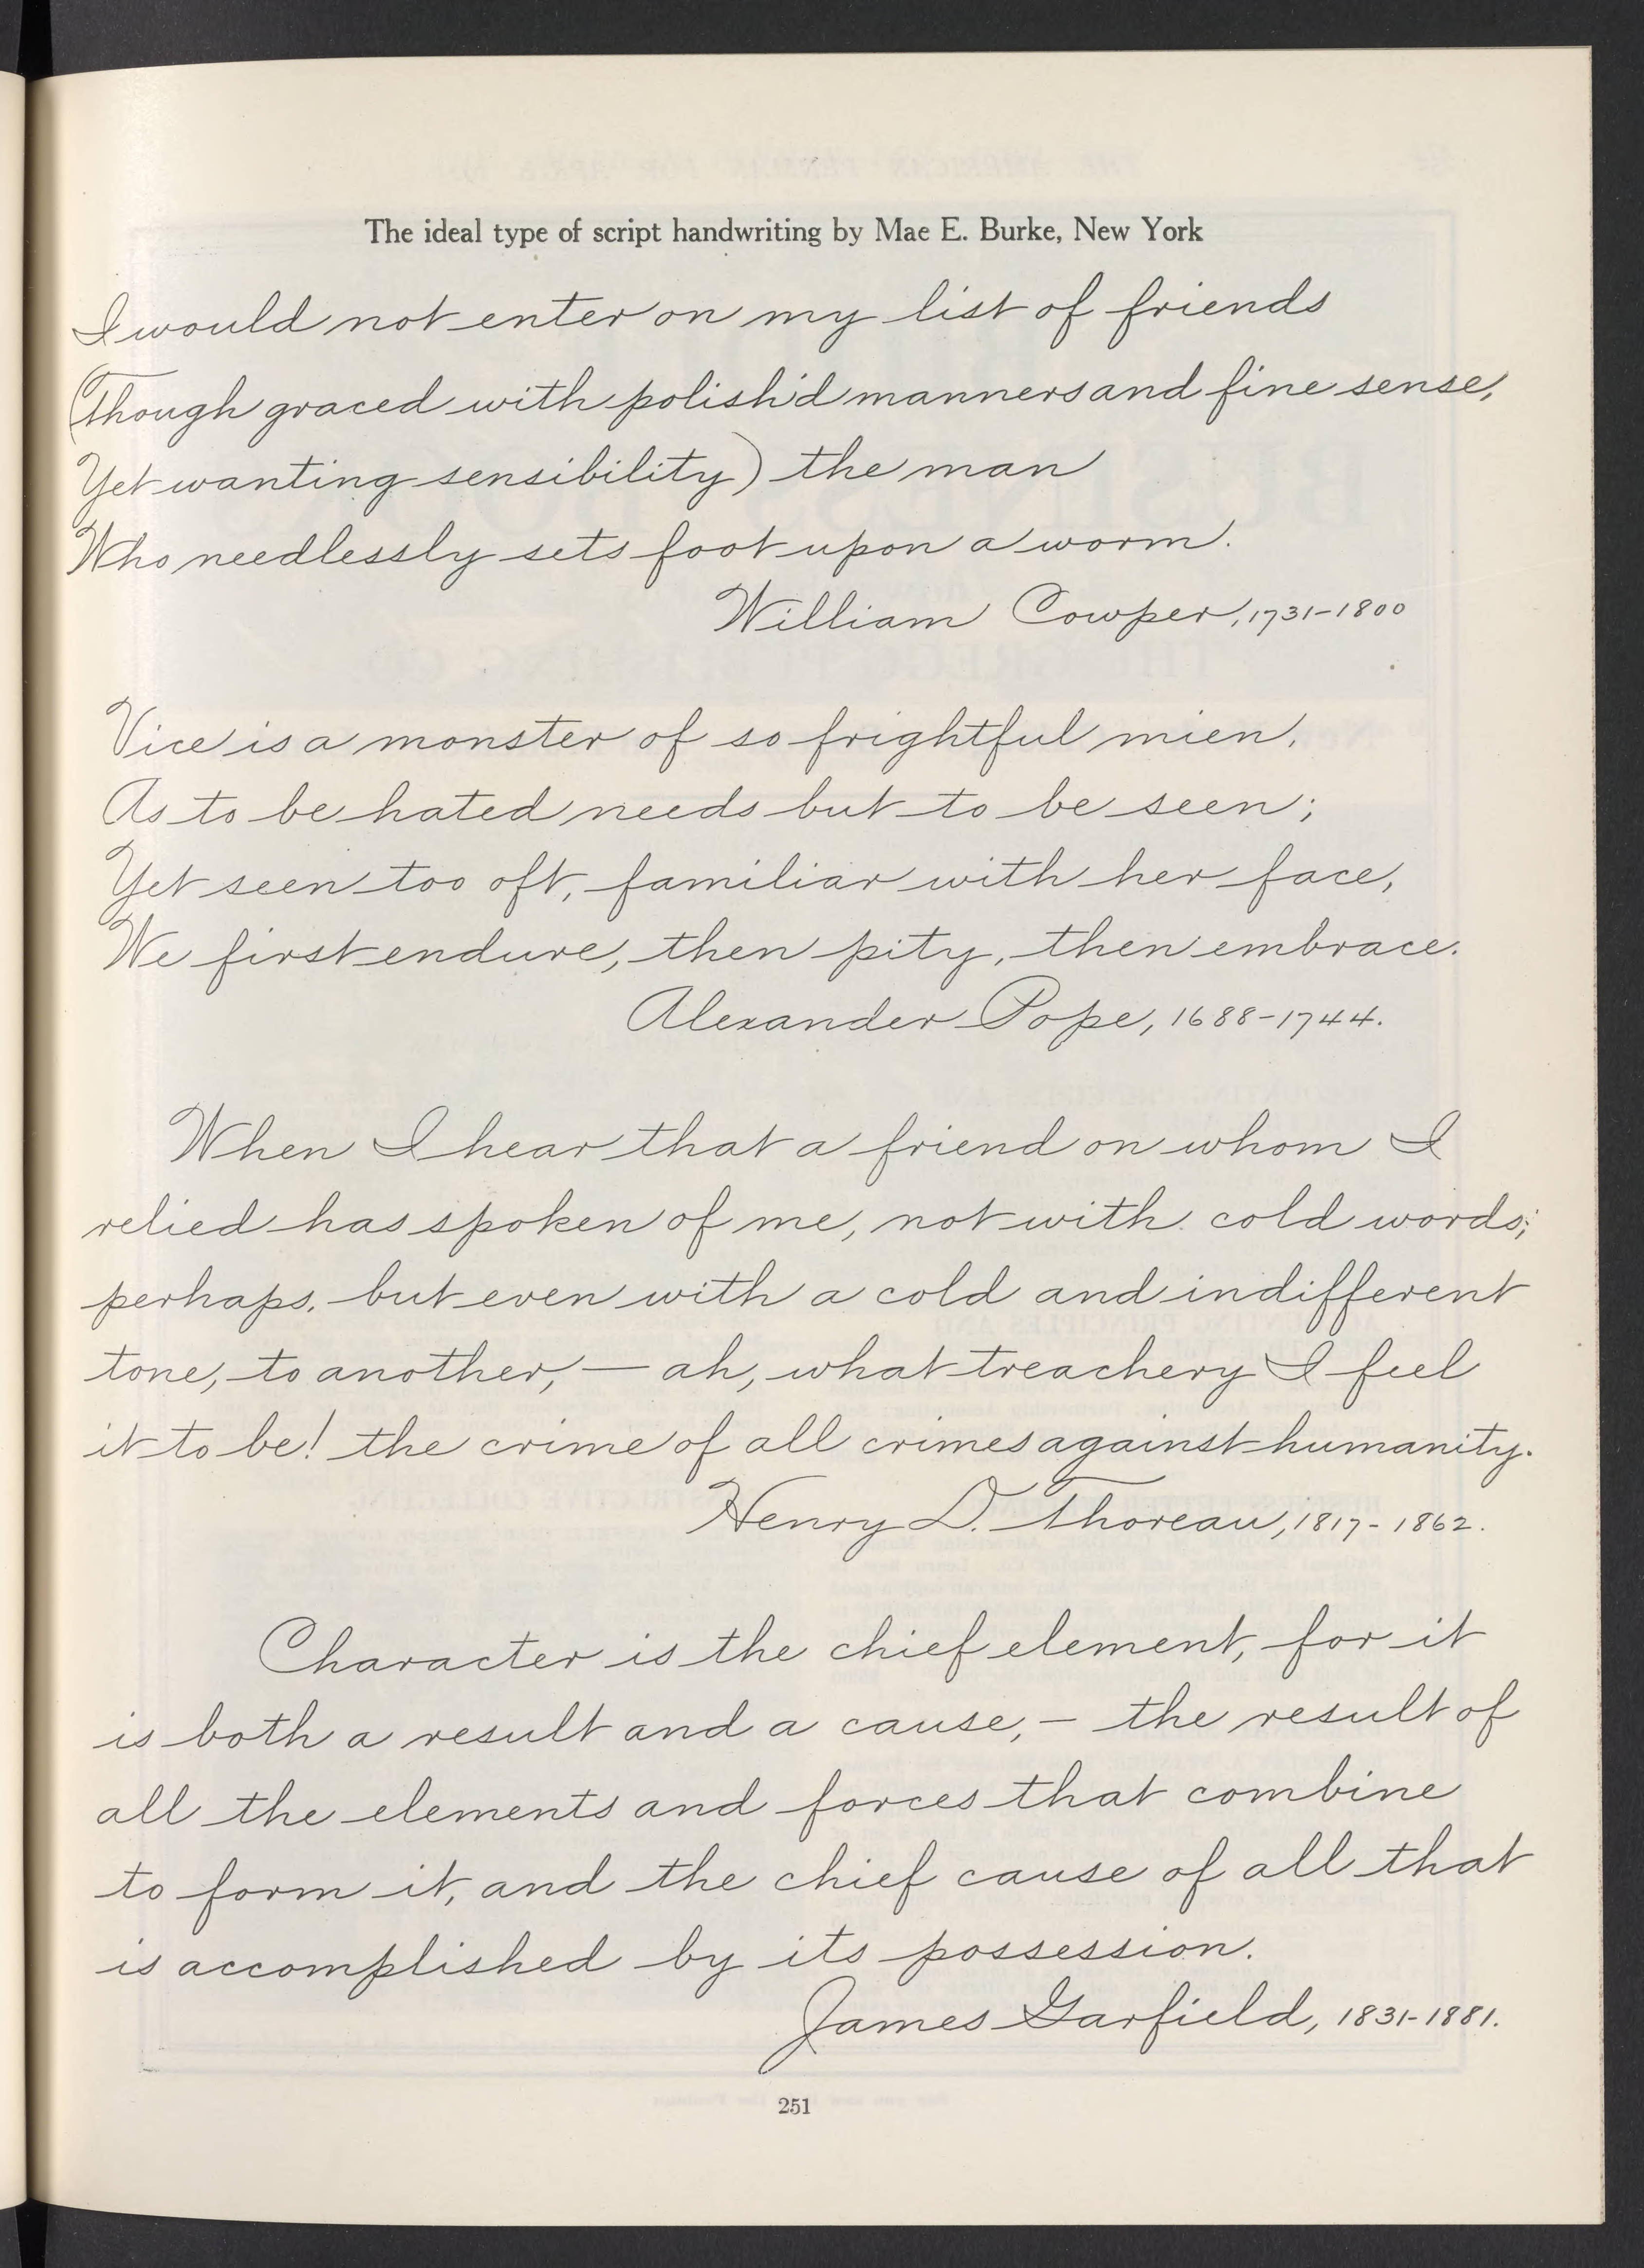 The ideal type of script handwriting by Mae E. Burke, New York
I would not enter on my list of friends
(Though graced with polish'd manners and fine sense,
Yet wanting sensibility) the man
Who needlessly sets foot upon a worm.
William Cowper, 1731-1800
Vice is a monster of so frightful mien,
As to be hated needs but to be seen;
Yet seen too oft, familiar with her face,
We first endure, then pity, then embrace.
Alexander Pope, 1688-1744.
When I hear that a friend on whom I
relied has spoken of me, not with cold words;
perhaps, but even with a cold and indifferent
tone, to another, — ah, what treachery I feel
it to be! the crime of all crimes against humanity.
Henry D. Thoreau, 1817-1862.
Character is the chief element, for it
is both a result and a cause, — the result of
all the elements and forces that combine
to form it, and the chief cause of all that
is accomplished by its possession.
James Garfield, 1831-1881.
251